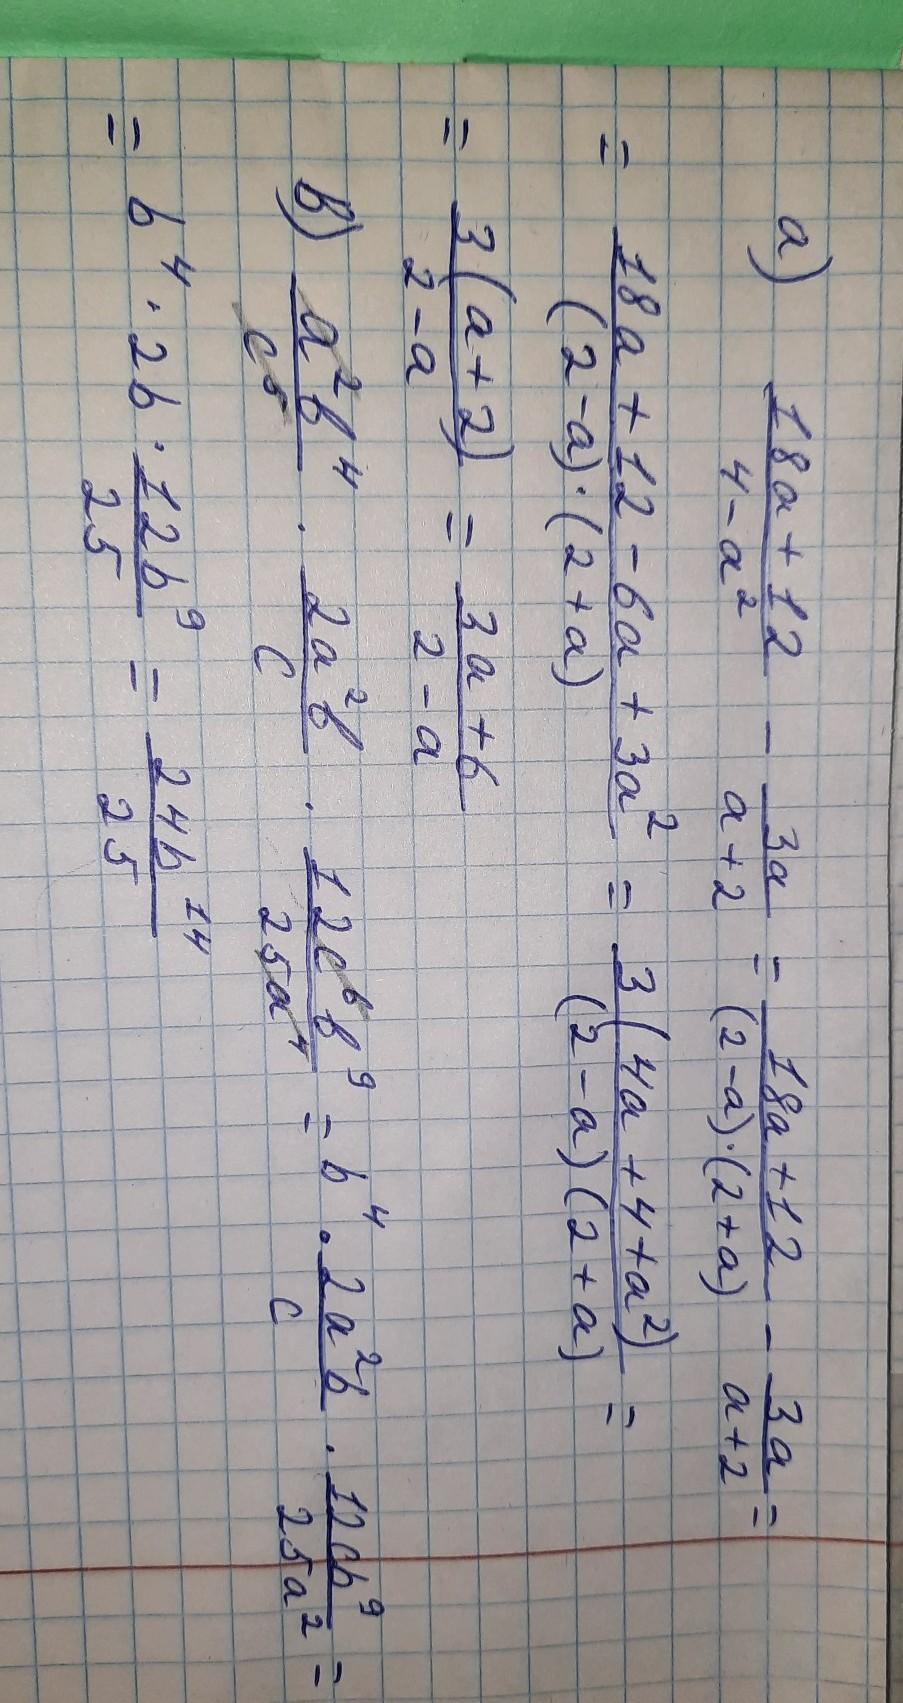 a) (18a+12)/(4-a²) - 3a/(a+2) = (18a+12)/((2-a)·(2+a)) - 3a/(a+2) =
= (18a+12-6a+3a²)/((2-a)·(2+a)) = 3(4a+4+a²)/((2-a)(2+a)) =
= 3(a+2)/(2-a) = (3a+6)/(2-a)
в) a²b⁴/c⁵ · 2a²b/c · 12c⁶b⁹/25a⁴ = b⁴ · 2a²b/c · 12cb⁹/25a² =
= b⁴ · 2b · 12b⁹/25 = 24b¹⁴/25